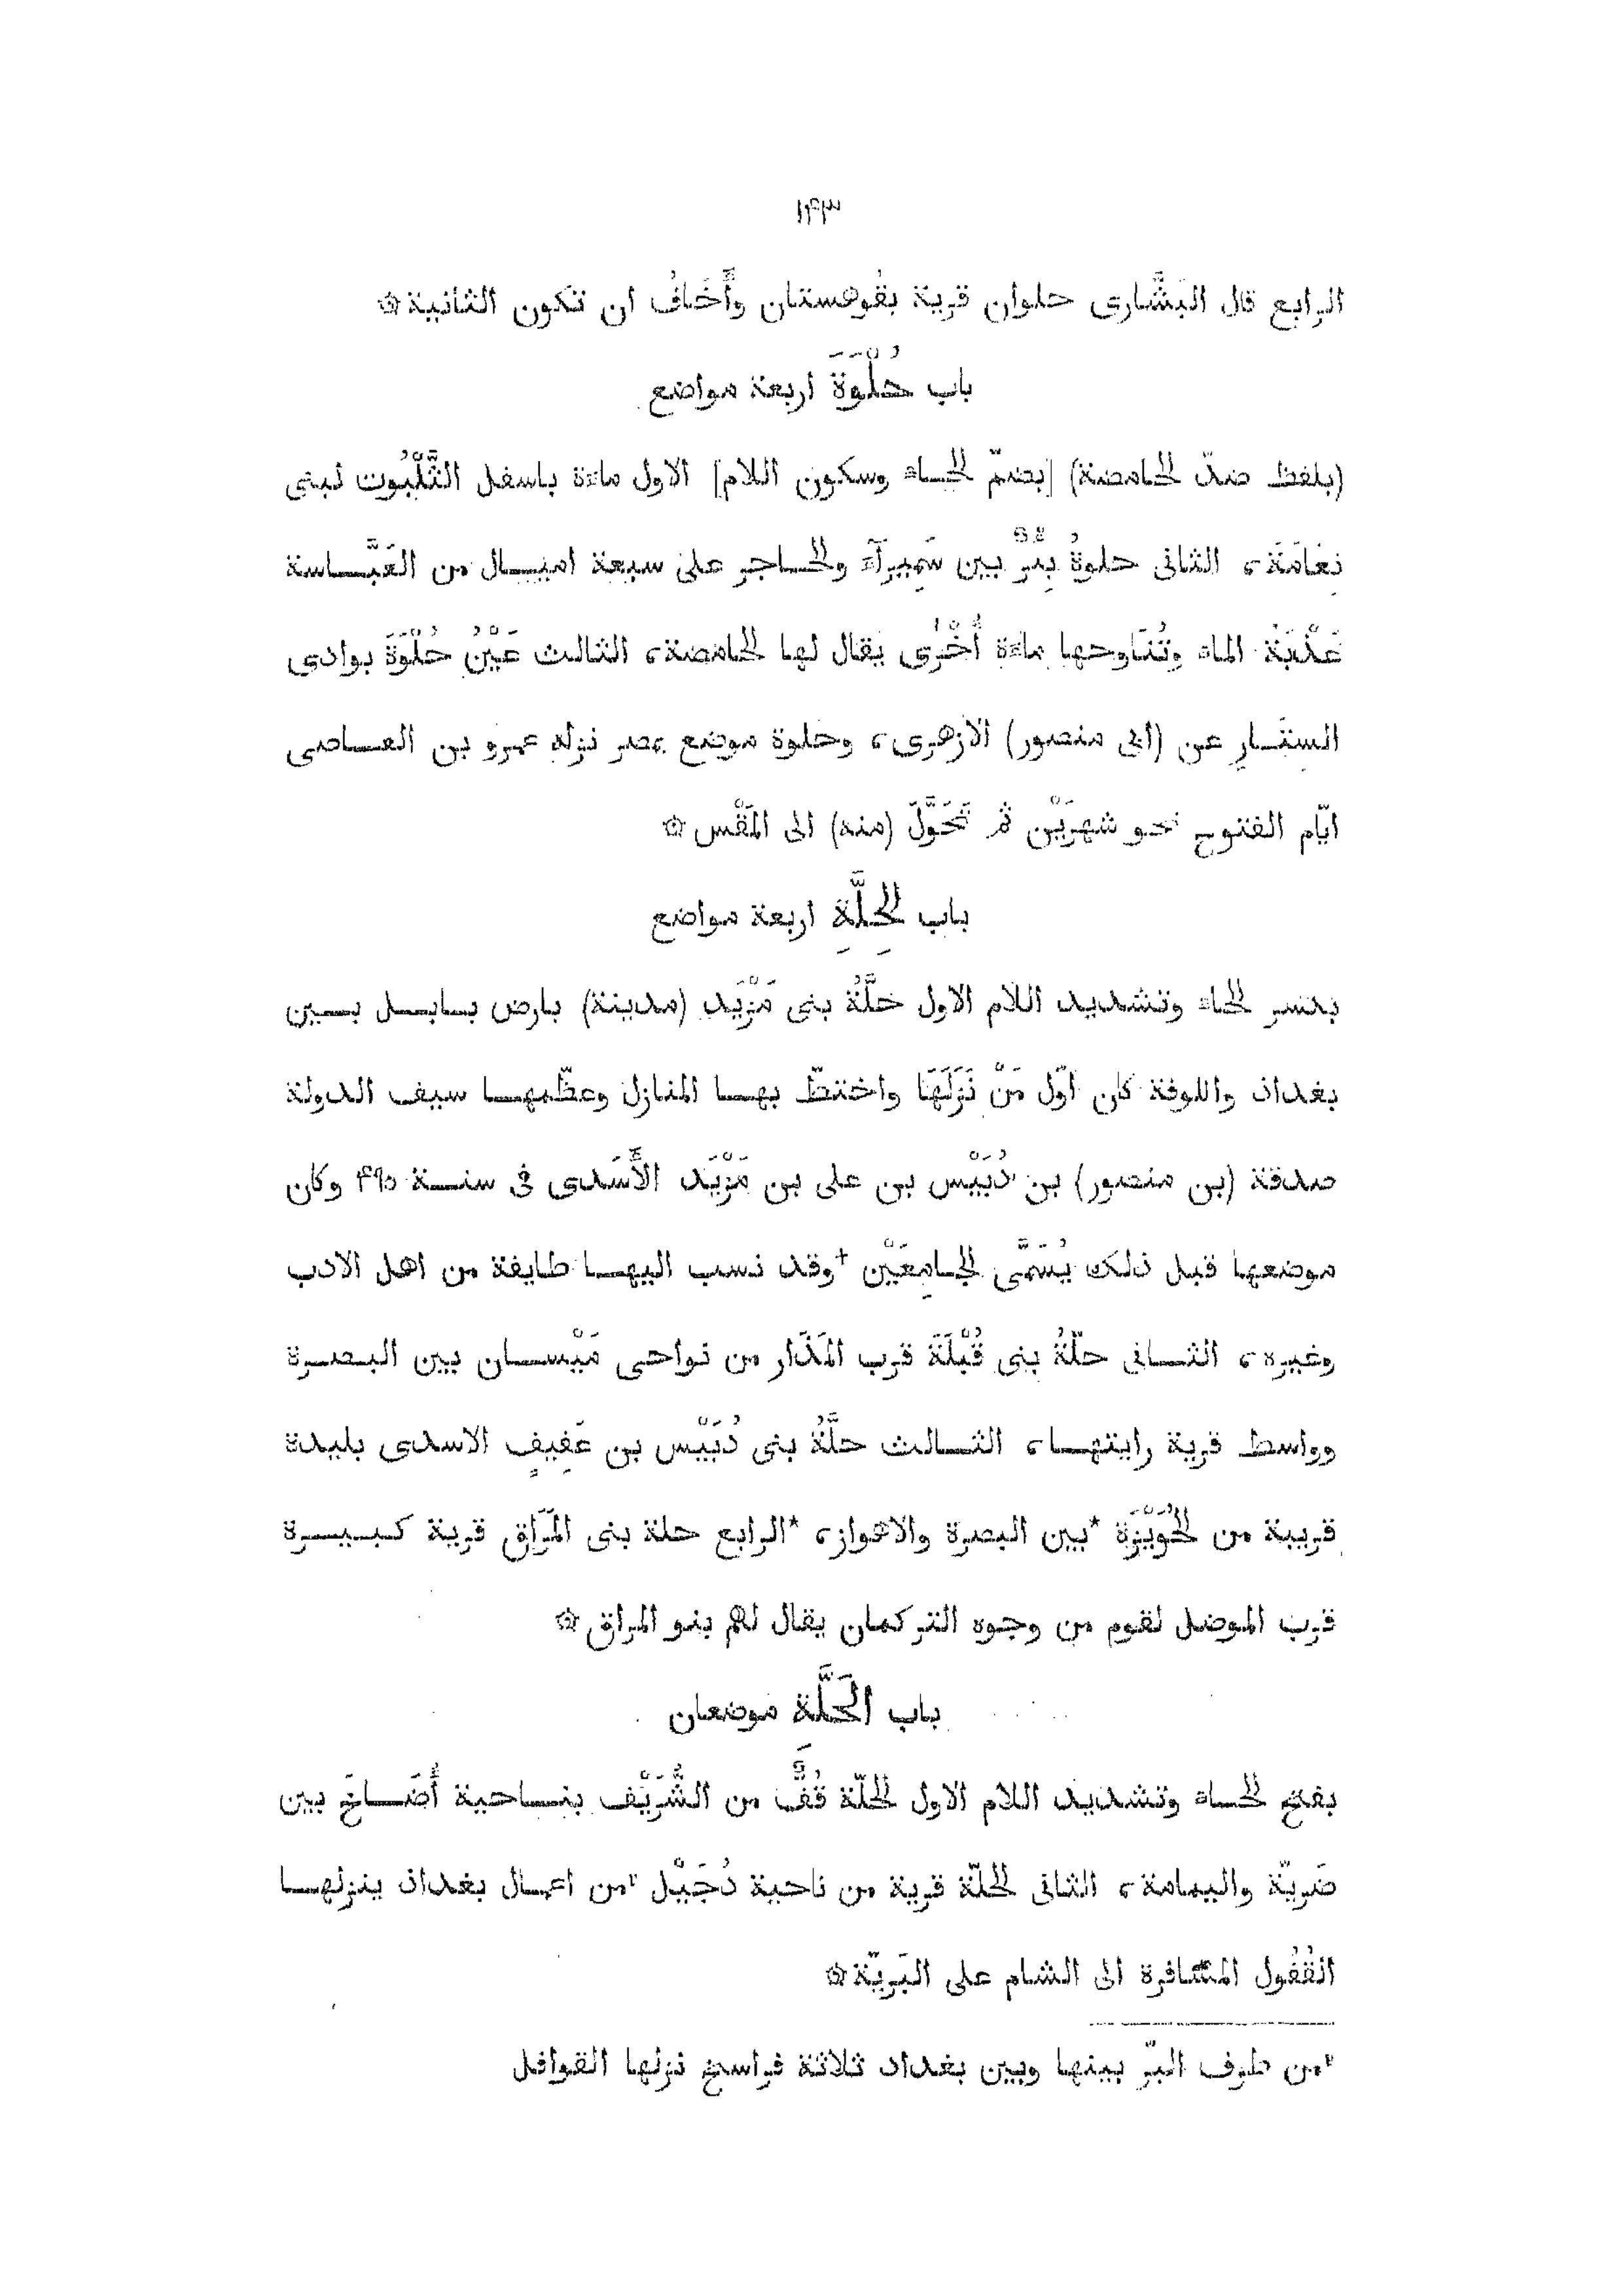 ١٤٣
الرابع قال البَشَّارى حلوان قرية بقُوهستان وأَخَافُ ان تكون الثانية ۞
باب حُلْوَةَ اربعة مواضع
(بلفظ ضدّ الحامضة) [بضمّ الحاء وسكون اللام] الاول ماءة باسفل الثَّلَبُوت لبنى
نِعَامَةَ، الثانى حلوةُ بِئْرٌ بين سَمِيرَآءَ والحاجر على سبعة اميال من العَبَّاسة
عَذْبَةُ الماء وتُنَاوحها ماءة أُخْرَى يقال لها الحامضة، الثالث عَيْنُ حُلْوَةَ بوادى
الستَارِ عن (ابى منصور) الازهرى، وحلوة موضع بمصر نزله عمرو بن العاصى
ايّام الفتوح نحو شهرَيْن ثم تَحَوَّلَ (منه) الى المَقْس ۞
باب الحِلَّةِ اربعة مواضع
بكسر الحاء وتشديد اللام الاول حلَّةُ بنى مَزْيَد (مدينة) بارض بابل بين
بغداذ والكوفة كان اوّل مَنْ نَزَلَهَا واختطّ بها المنازل وعظّمها سيف الدولة
صدقة (بن منصور) بن دُبَيْس بن على بن مَزْيَد الأَسَدى فى سنة ٤٩٥ وكان
موضعها قبل ذلك يُسَمَّى الجامِعَيْن †وقد نسب اليها طايفة من اهل الادب
وغيره، الثانى حلّةُ بنى قُيْلَةَ قرب المَذَار من نواحى مَيْسان بين البصرة
وواسط قرية رايتها، الثالث حلَّةُ بنى دُبَيْس بن عَفِيفٍ الاسدى بليدة
قريبة من الحُوَيْزَة *بين البصرة والاهواز، *الرابع حلة بنى المَرَّاق قرية كبيرة
قرب الموصل لقوم من وجوه التركمان يقال لهم بنو المراق ۞
باب الحَلَّةِ موضعان
بفتح الحاء وتشديد اللام الاول الحلّة قُفٌّ من الشُّرَيْف بناحية أُضَاخَ بين
ضَرِيّة واليمامة، الثانى الحلّة قرية من ناحية دُجَيْل "من اعمال بغداذ ينزلها
القُفُول المسافرة الى الشام على البَرِيّة ۞
"من طرف البرّ بينها وبين بغداد ثلاثة فراسخ نزلها القوافل